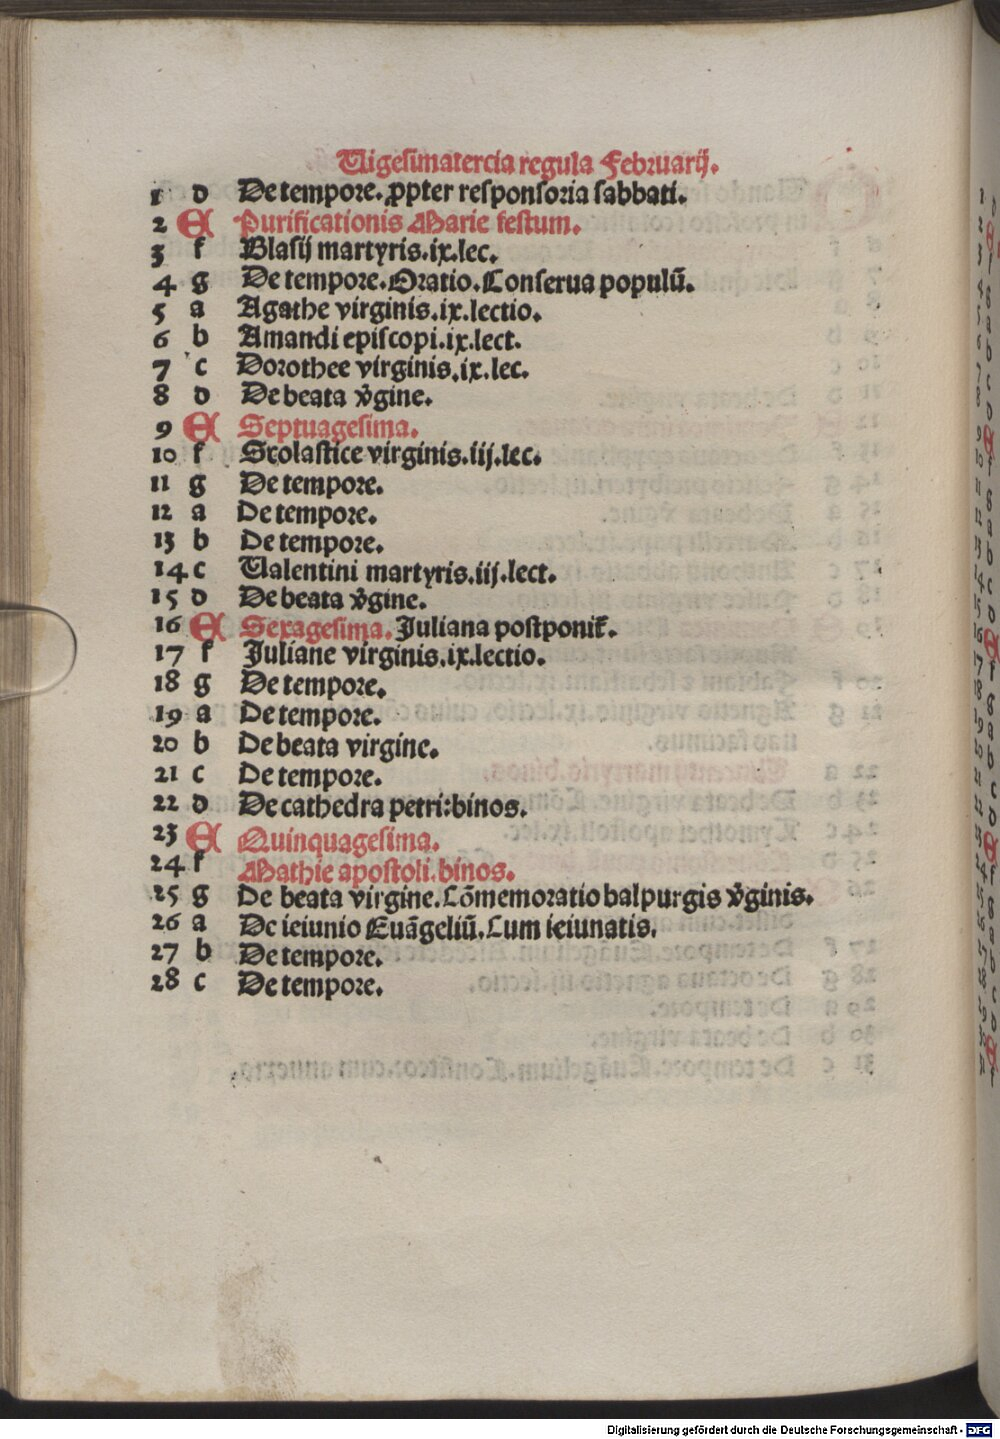 Vigesimatercia regula Februarij.
1 d De tempore. ꝓpter responsoria sabbati.
2 E Purificationis Marie festum.
3 f Blasij martyris.ix.lec.
4 g De tempore. Oratio. Conserua populū.
5 a Agathe virginis.ix.lectio.
6 b Amandi episcopi.ix.lect.
7 c Dorothee virginis.ix.lec.
8 d De beata v̄gine.
9 E Septuagesima.
10 f Scolastice virginis.iij.lec.
11 g De tempore.
12 a De tempore.
13 b De tempore.
14 c Valentini martyris.iij.lect.
15 d De beata v̄gine.
16 E Sexagesima. Juliana postponit̄.
17 f Juliane virginis.ix.lectio.
18 g De tempore.
19 a De tempore.
20 b De beata virgine.
21 c De tempore.
22 d De cathedra petri: binos.
23 E Quinquagesima.
24 f Mathie apostoli. binos.
25 g De beata virgine. Cōmemoratio balpurgis v̄ginis.
26 a De ieiunio Euāgeliū. Cum ieiunatis.
27 b De tempore.
28 c De tempore.
Digitalisierung gefördert durch die Deutsche Forschungsgemeinschaft - DFG